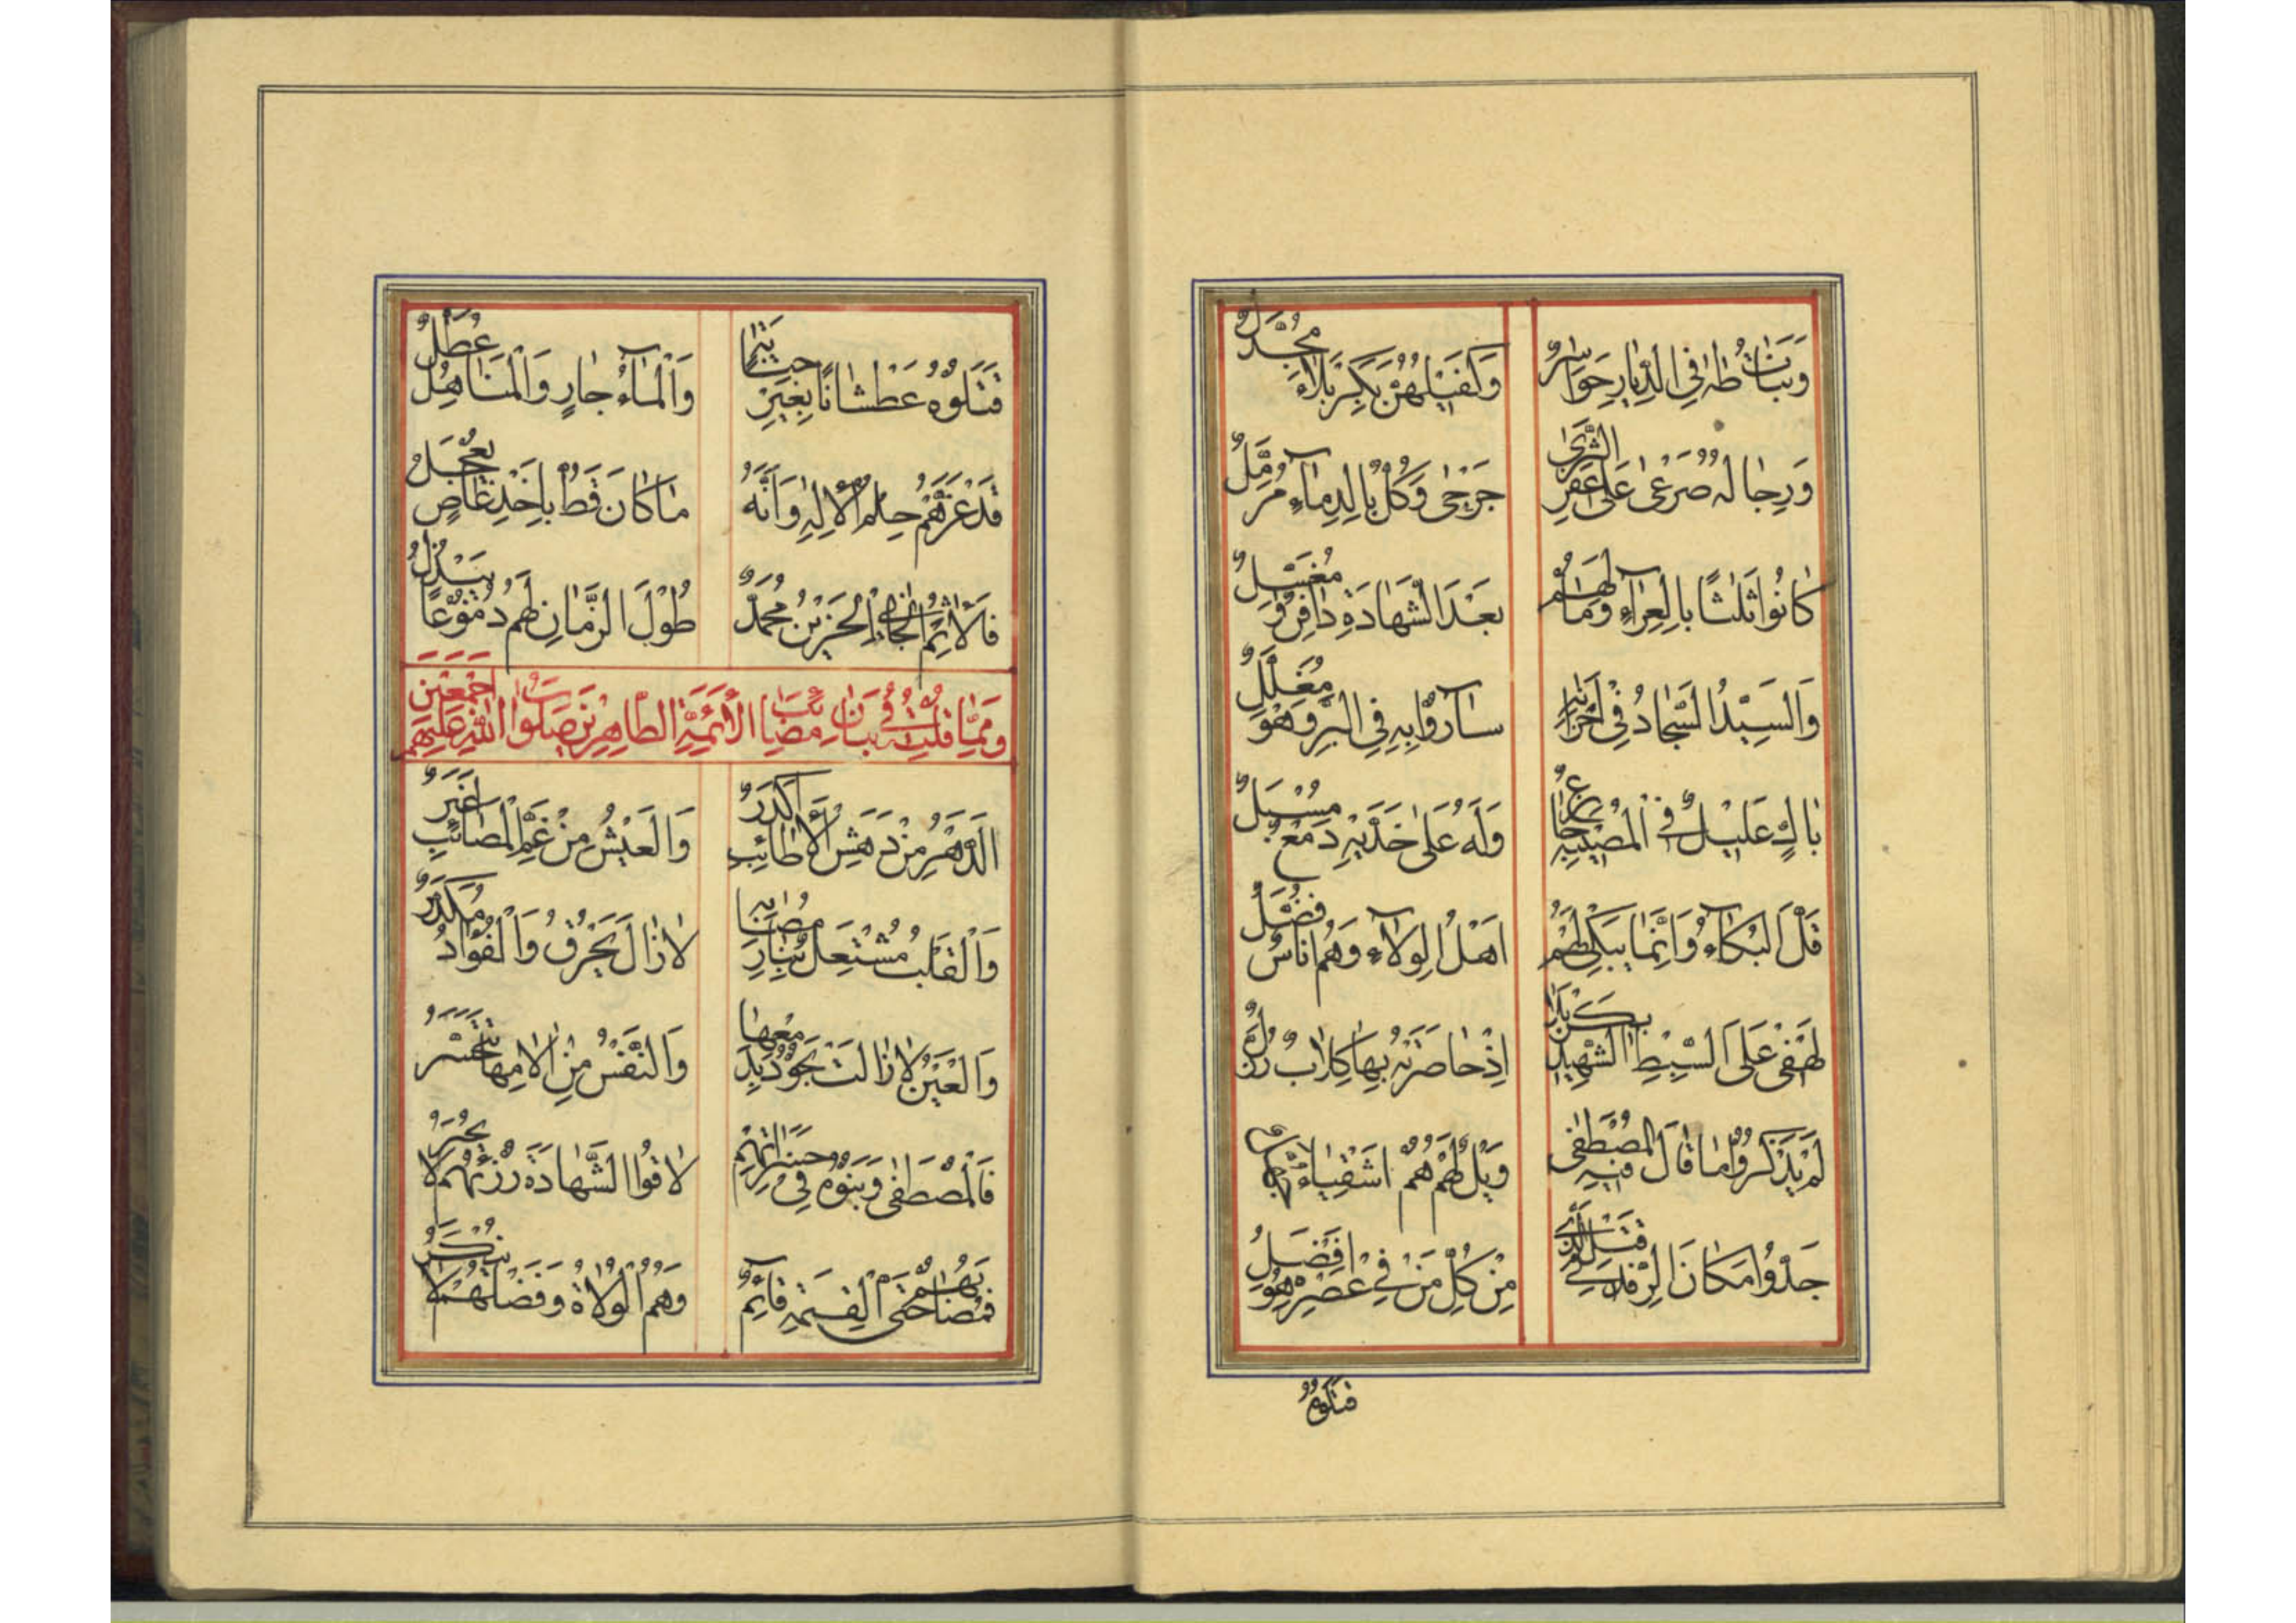 وَبَنَاتُ طٰهٰ فِي الدِّيَارِ حَوَاسِرٌ وَكَفَيْلُهُنَّ بِكَرْبَلَاءَ مُجَدَّلٌ
وَرِجَالُهُ صَرْعىٰ عَلىٰ عَفْرِ الثَّرىٰ جَرْحىٰ وَكُلٌّ بِالدِّمَاءِ مُرَمَّلٌ
كَانُوا ثَلٰثًا بِالْعَرَاءِ وَمَا لَهُمْ بَعْدَ الشَّهَادَةِ دَافِنٌ وَمُغَسِّلٌ
وَالسَّيِّدُ السَّجَّادُ فِي أَحْزَانِهِ سَارُوا بِهِ فِي الْبَرِّ وَهُوَ مُغَلَّلٌ
بَاكٍ عَلِيْلٌ فِي الْمُصِيْبَةِ جَازِعٌ وَلَهُ عَلىٰ خَدَّيْهِ دَمْعٌ مُسْبَلٌ
قَلَّ الْبُكَاءُ وَإِنَّمَا يَبْكِي لَهُمْ اَهْلُ الْوِلَاءِ وَهُمْ أُنَاسٌ فُضَّلٌ
لَهْفِي عَلَى السِّبْطِ الشَّهِيْدِ بِكَرْبَلَا اِذْ حَاصَرَتْهُ بِهَا كِلَابٌ
لَمْ يَذْكُرُوا مَا قَالَ فِيْهِ الْمُصْطَفىٰ وَيْلٌ لَهُمْ هُمْ اَشْقِيَاءُ
مِنْ كُلِّ مَنْ فِي عَصْرِهِ هُوَ اَفْضَلُ
قَتَلُوهُ
قَتَلُوهُ عَطْشَانًا بِغَيْرِ جِنَايَةٍ وَالْمَاءُ جَارٍ وَالْمَنَاهِلُ عُطَّلٌ
قَدْ غَرَّهُمْ حِلْمُ الْاِلٰهِ وَاَنَّهُ مَا كَانَ قَطُّ بِاَخْذِ عَاصٍ يَعْجَلُ
فَالْآثِمُ الْجَانِي الْحَزِيْنُ مُحَمَّدٌ طُوْلَ الزَّمَانِ لَهُمْ دُمُوْعًا يَبْذُلُ
وَمِمَّا قُلْتُ فِي بَيَانِ مَصَائِبِ الْأَئِمَّةِ الطَّاهِرِيْنَ صَلَوَاتُ اللّٰهِ عَلَيْهِمْ اَجْمَعِيْنَ
اَلدَّهْرُ مِنْ دَهَشِ الْأَطَائِبِ اَكْدَرُ وَالْعَيْشُ مِنْ غَمِّ الْمَصَائِبِ اَغْبَرُ
وَالْقَلْبُ مُشْتَعِلٌ بِنَارِ مُصَابِهَا لَا زَالَ يَحْرِقُ وَالْفُؤَادُ مُكَدَّرٌ
وَالْعَيْنُ لَا زَالَتْ تَجُوْدُ بِدَمْعِهَا وَالنَّفْسُ مِنْ اٰلَامِهَا تَتَحَسَّرُ
فَالْمُصْطَفىٰ وَبَنُوهُ فِي حَسَرَاتِهِمْ لَاقُوا الشَّهَادَةَ رُزْئُهُمْ لَا يُحْصَرُ
فَمُصَابُهُمْ حَتَّى الْقِيٰمَةِ قَائِمٌ وَهُمُ الْوُلَاةُ وَفَضْلُهُمْ لَا يُنْكَرُ